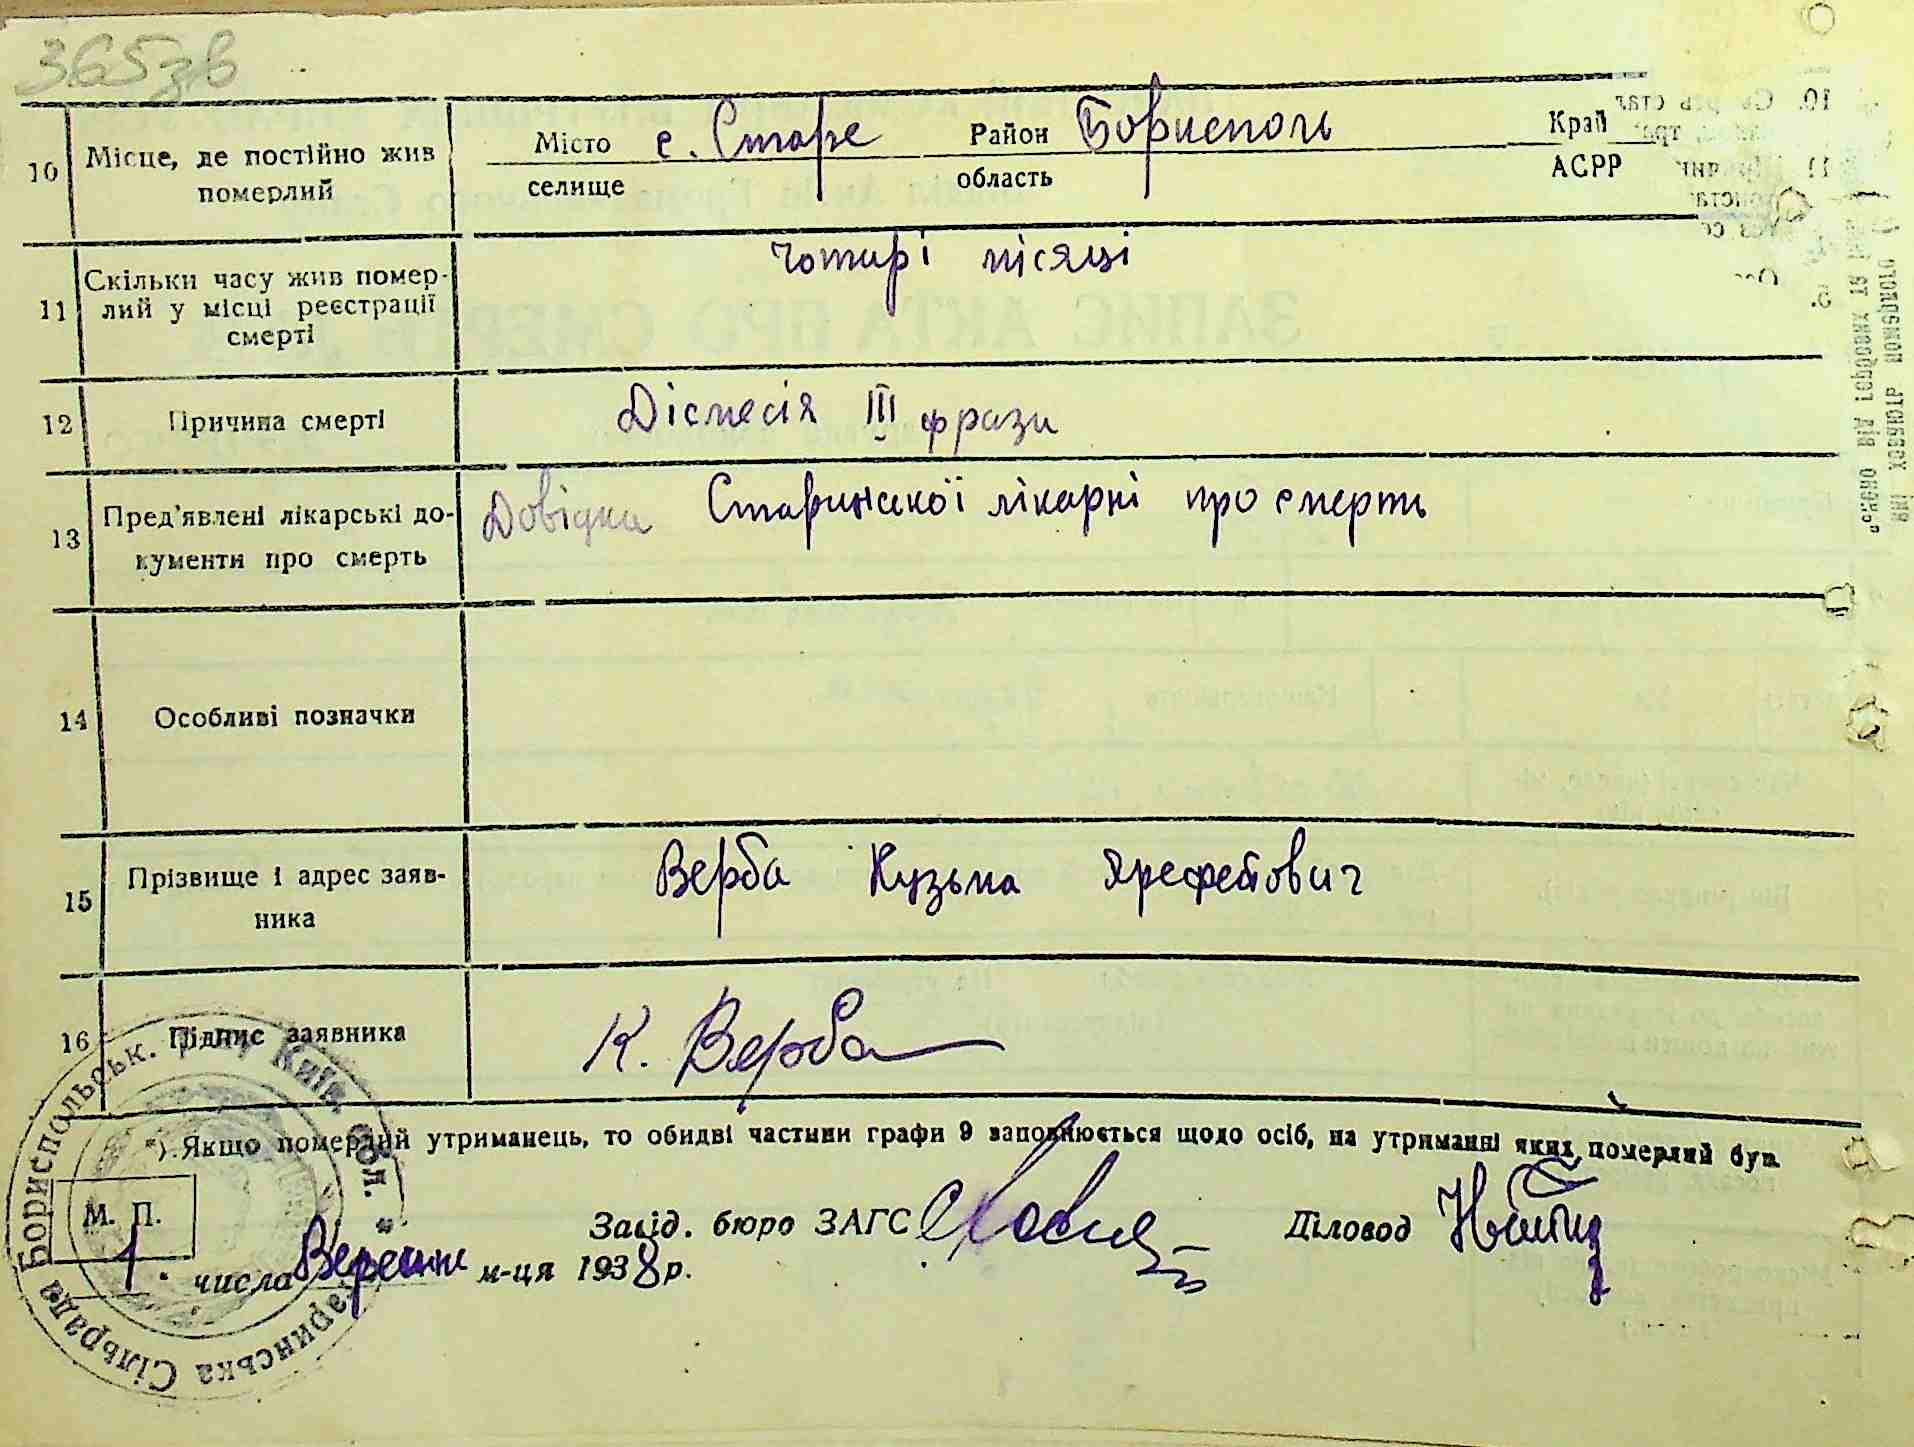 365зв
10 Місце, де постійно жив померлий
Місто с. Старе Район Борисполь Край
селище область АСРР
11 Скільки часу жив помер-
лий у місці реєстрації
смерті
чотирі місяці
12 Причина смерті Діспесія III фрази
13 Пред'явлені лікарські до-
кументи про смерть
Довідка Старинської лікарні про смерть
14 Особливі позначки
15 Прізвище і адрес заяв-
ника
Верба Кузьма Ярефетович
16 Підпис заявника К. Верба
*) Якщо померлий утриманець, то обидві частини графи 9 заповнюється щодо осіб, на утриманні яких померлий був.
М. П.
Завід. бюро ЗАГС Діловод
1 числа Вересня м-ця 1938 р.
Старинська Сільрада Бориспольськ. р-ну Київ. обл. *